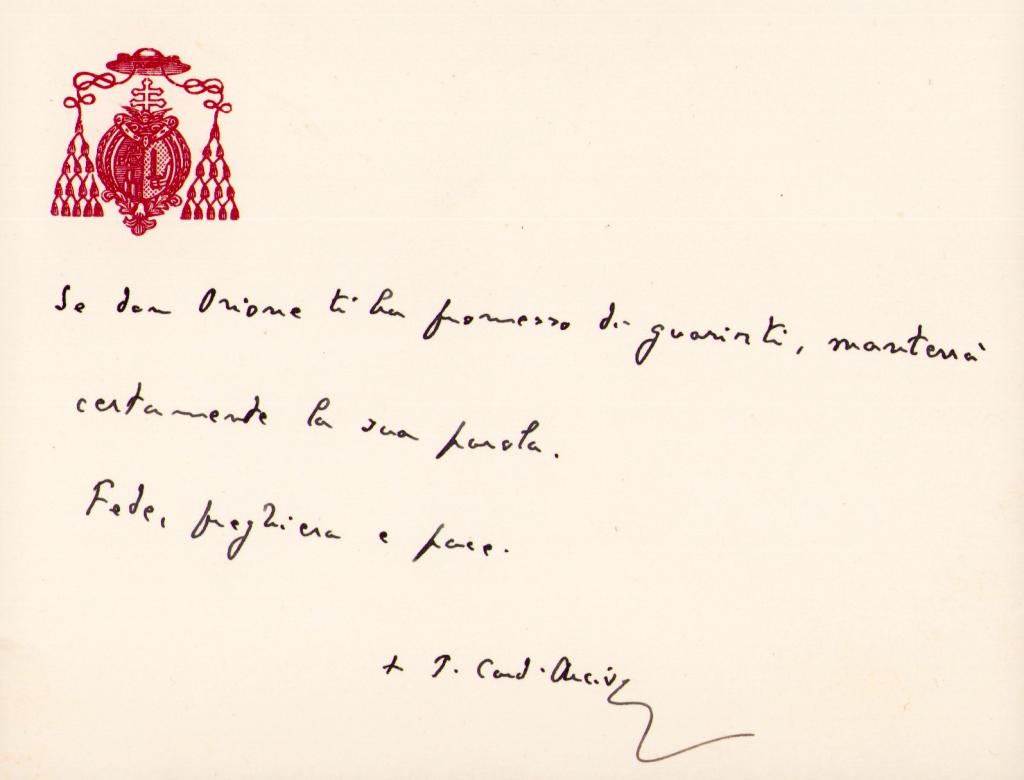 Se don Orione ti ha promesso di guarirti, manterrà
certamente la sua parola.
Fede, preghiera e pace.
+ P. Card. Arciv